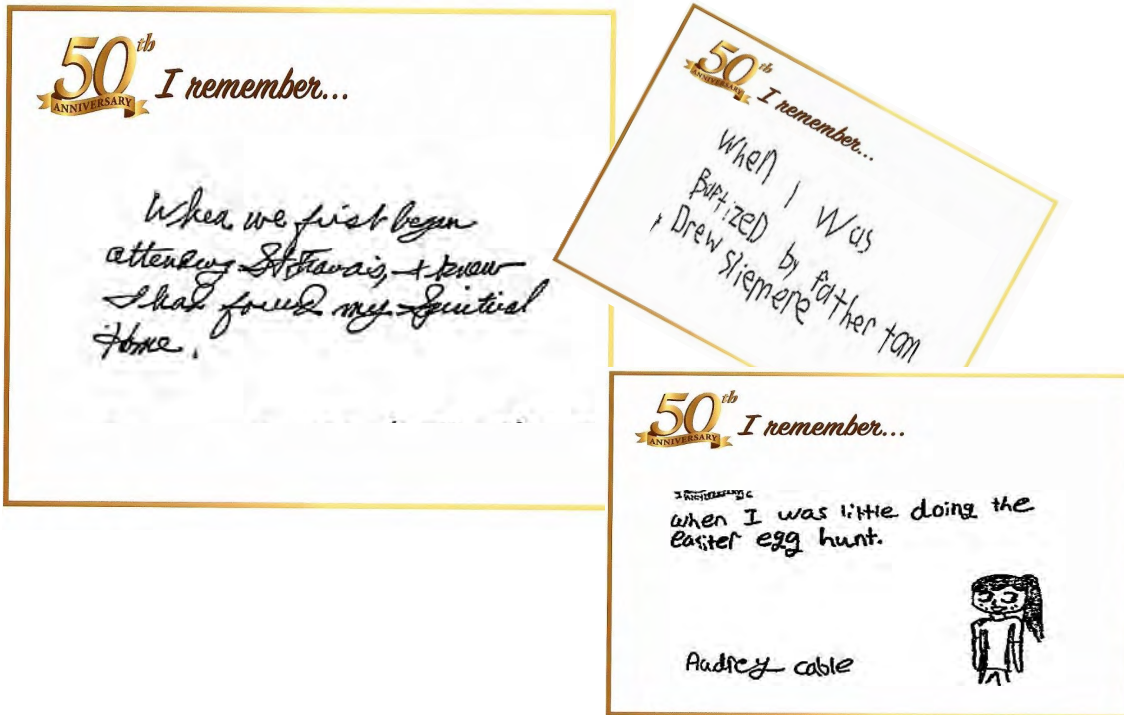 50th
ANNIVERSARY
I remember...
When we first began
attending St Francis, I knew
I had found my Spiritual
Home.
50th
ANNIVERSARY
I remember...
When I Was
BapTIZED by father tom
Drew Sliemere
50th
ANNIVERSARY
I remember...
when I was little doing the
easter egg hunt.
Audrey cable